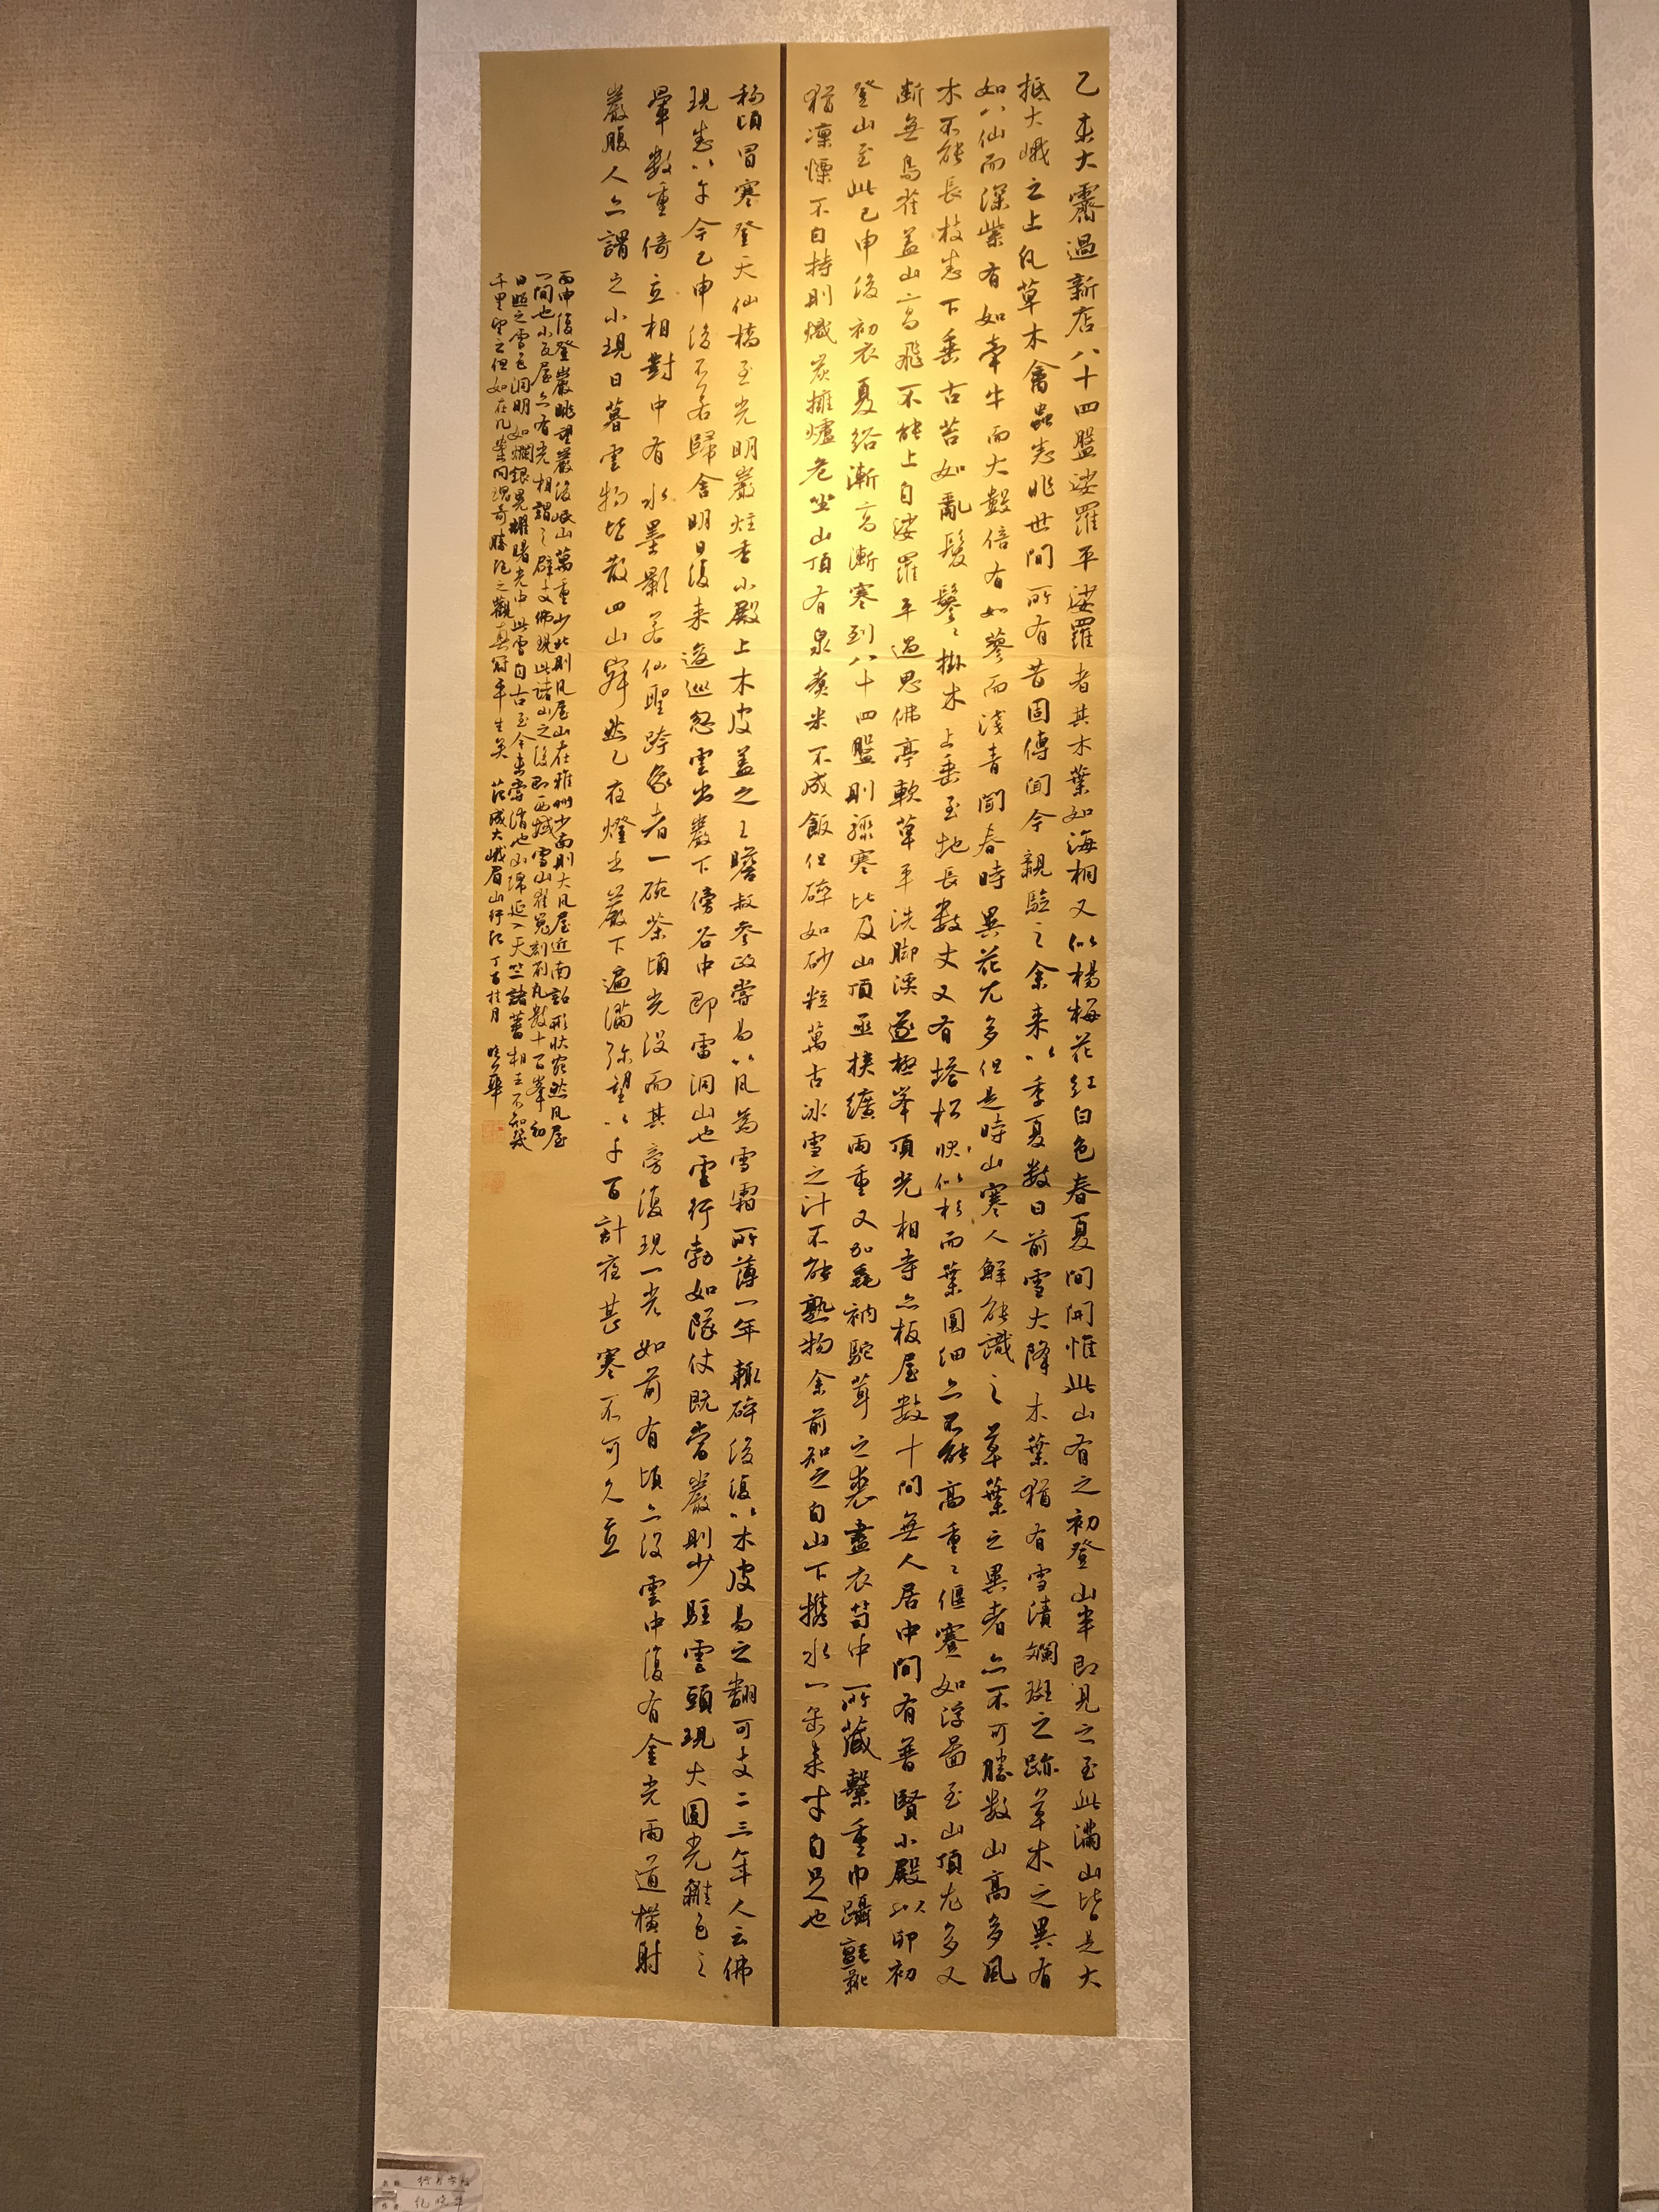 乙未大霽過新店八十四盤娑羅平娑羅者其木葉如海桐又似楊梅花紅白色春夏間開惟此山有之初登山半即見之至此滿山皆是大
抵大峨之上凡草木禽蟲悉非世間所有昔固傳聞今親驗之余来以季夏数日前雪大降木葉猶有雪漬斕斑之跡草木之異有
如八仙而深紫有如牽牛而大數倍有如蓼而淺青聞春時異花尤多但是時山寒人鮮能識之草葉之異者亦不可勝数山高多風
木不能長枝悉下垂古苔如亂髮鬖々掛木上垂至地長數丈又有塔松狀似杉而葉圓細亦不能高重々偃蹇如浮圖至山頂尤多又
断無鳥雀蓋山高飛不能上自娑羅平過思佛亭軟草平洗脚溪遂極峯頂光相寺亦板屋數十間無人居中間有普賢小殿以卯初
登山至此已申後初衣夏綌漸高漸寒到八十四盤則驟寒比及山頂亟挾纊兩重又加毳衲駝茸之裘盡衣笥中所藏繫重巾躡氈靴
猶凜慄不自持則熾炭擁爐危坐山頂有泉煮米不成飯但碎如砂粒萬古冰雪之汁不能熟物余前知之自山下攜水一缶来才自足也
移頃冒寒登天仙橋至光明巖炷香小殿上木皮蓋之王瞻叔參政嘗易以瓦為雪霜所薄一年輒碎後復以木皮易之翻可支二三年人云佛
現悉以午今已申後不若歸舍明日復来逡巡忽雲出巖下傍谷中即雷洞山也雲行勃如隊仗既當巖則少駐雲頭現大圓光雜色之
暈數重倚立相對中有水墨影若仙聖跨象者一碗茶頃光没而其旁復現一光如前有頃亦没雲中復有金光兩道橫射
巖腹人亦謂之小現日暮雲物皆散四山寂然乙夜燈出巖下遍滿弥望以千百計夜甚寒不可久立
丙申復登巖眺望巖後岷山萬重少北則瓦屋山在雅州少南則大瓦屋近南詔形狀宛然瓦屋
一間也小瓦屋亦有光相謂之辟支佛現此諸山之後即西域雪山崔嵬刻削凡數十百峯初
日照之雪色洞明如爛銀晃耀曙光中此雪自古至今未嘗消也山綿延入天竺諸蕃相去不知幾
千里望之但如在几案間瑰奇勝絕之觀真冠平生矣 范成大峨眉山行紀丁酉桂月 曉華